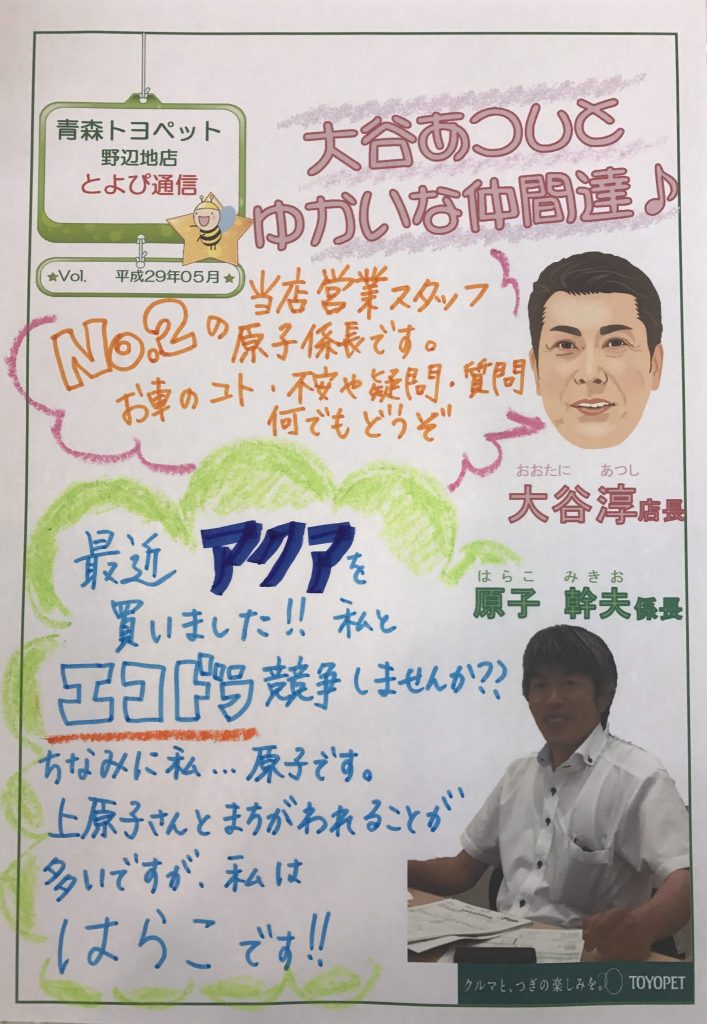 青森トヨペット
野辺地店
とよぴ通信
★Vol. 平成29年05月★
大谷あつしと
ゆかいな仲間達♪
当店営業スタッフ
No.2の原子係長です。
お車のコト・不安や疑問・質問
何でもどうぞ
おおたに あつし
大谷淳店長
はらこ みきお
原子 幹夫係長
最近 アクアを
買いました!! 私と
エコドラ競争しませんか??
ちなみに私…原子です。
上原子さんとまちがわれることが
多いですが、私は
はらこです!!
クルマと、つぎの楽しみを。 TOYOPET